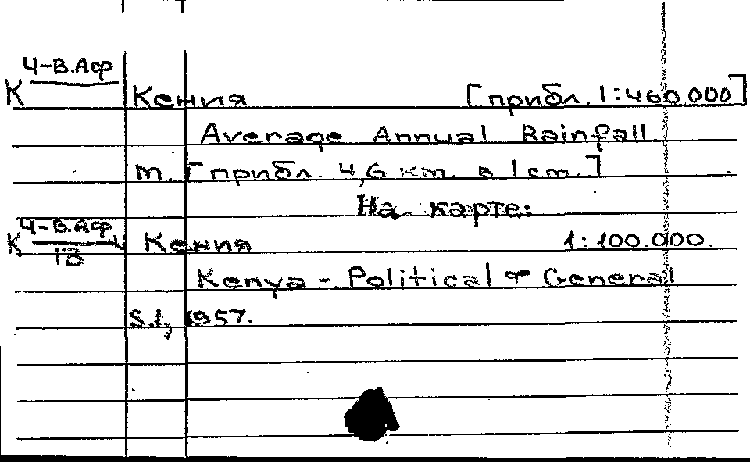 Ч-В.Аф
К Кения [прибл. 1:460.000]
Average Annual Rainfall
m. [прибл. 4,6 км. в 1 см.]
На карте:
К Ч-В.Аф. Кения 1:100.000.
13
Kenya - Political & General
S.l., 1957.